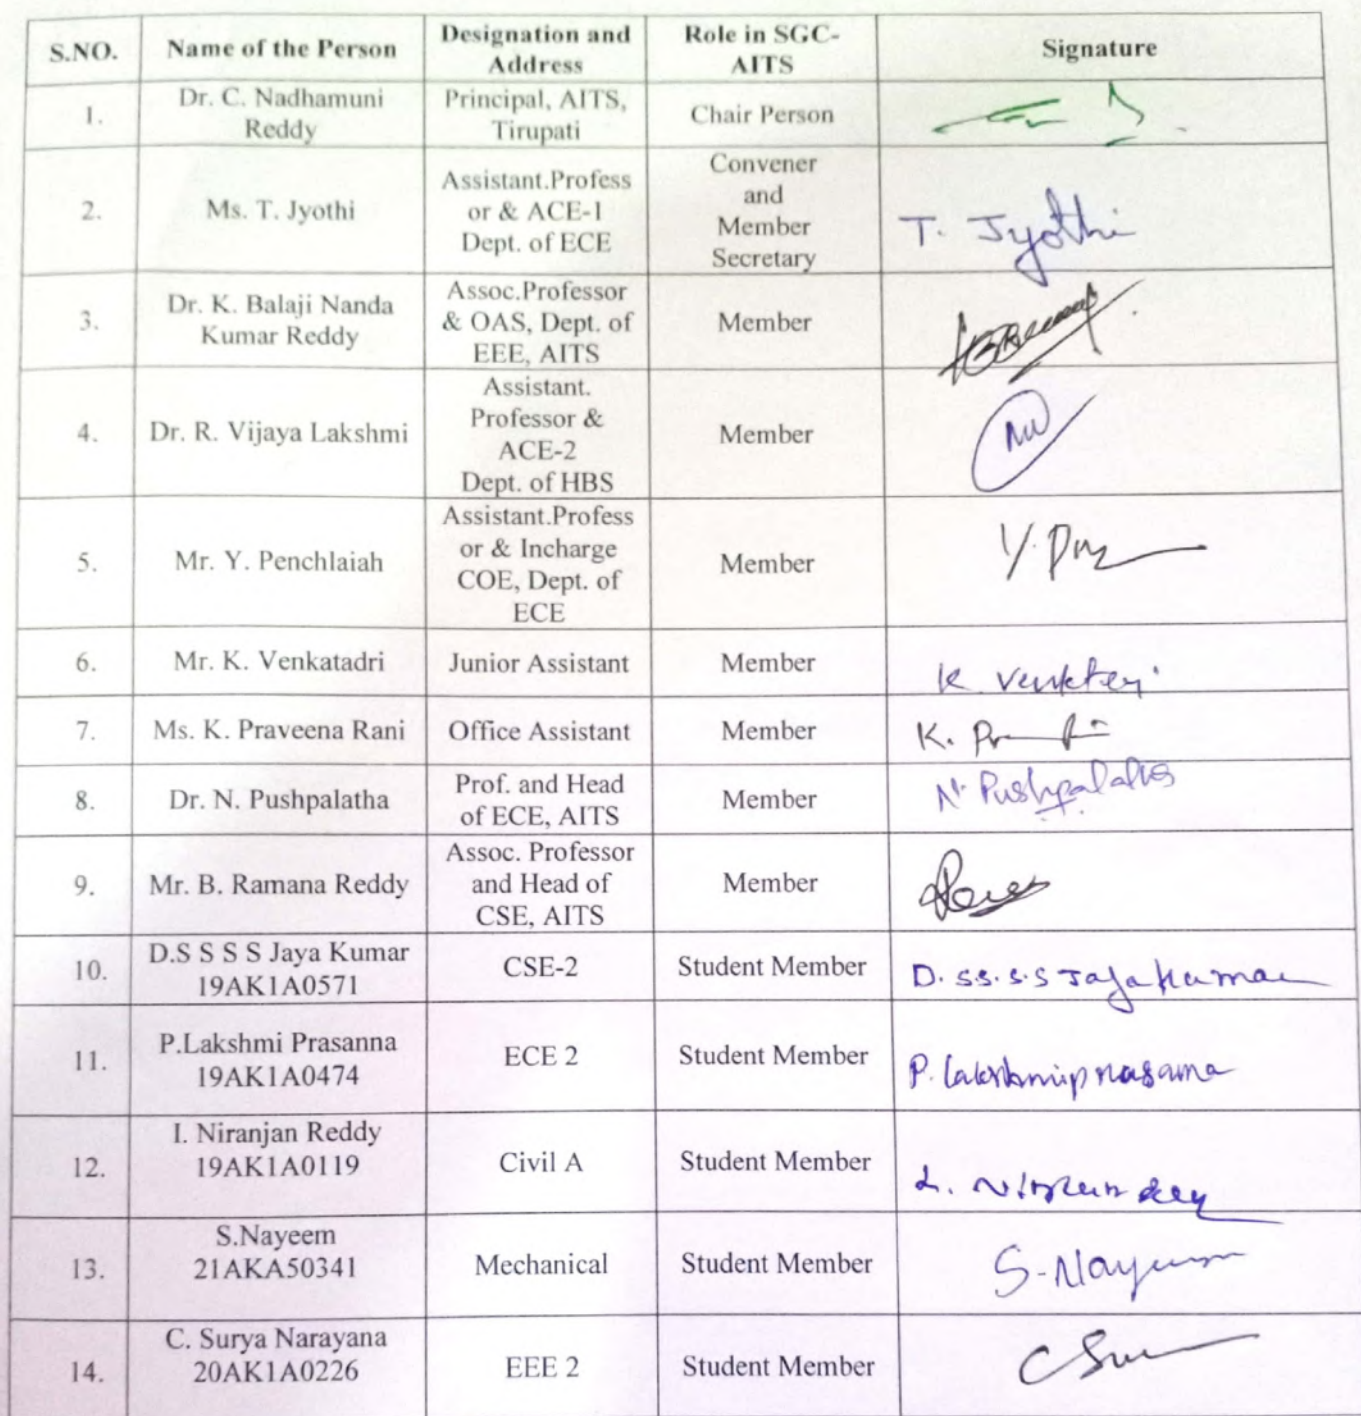 S.NO.
Name of the Person
Designation and
Address
Role in SGC-
AITS
Signature
1.
Dr. C. Nadhamuni
Reddy
Principal, AITS,
Tirupati
Chair Person
2.
Ms. T. Jyothi
Assistant.Profess
or & ACE-1
Dept. of ECE
Convener
and
Member
Secretary
T. Jyothi
3.
Dr. K. Balaji Nanda
Kumar Reddy
Assoc.Professor
& OAS, Dept. of
EEE, AITS
Member
4.
Dr. R. Vijaya Lakshmi
Assistant.
Professor &
ACE-2
Dept. of HBS
Member
5.
Mr. Y. Penchlaiah
Assistant.Profess
or & Incharge
COE, Dept. of
ECE
Member
6.
Mr. K. Venkatadri
Junior Assistant
Member
7.
Ms. K. Praveena Rani
Office Assistant
Member
8.
Dr. N. Pushpalatha
Prof. and Head
of ECE, AITS
Member
N. Pushpalatha
9.
Mr. B. Ramana Reddy
Assoc. Professor
and Head of
CSE, AITS
Member
10.
D.S S S S Jaya Kumar
19AK1A0571
CSE-2
Student Member
D. s s. s. s Jaya kumar
11.
P.Lakshmi Prasanna
19AK1A0474
ECE 2
Student Member
P. lakshmiprasanna
12.
I. Niranjan Reddy
19AK1A0119
Civil A
Student Member
13.
S.Nayeem
21AKA50341
Mechanical
Student Member
S. Nayeem
14.
C. Surya Narayana
20AK1A0226
EEE 2
Student Member